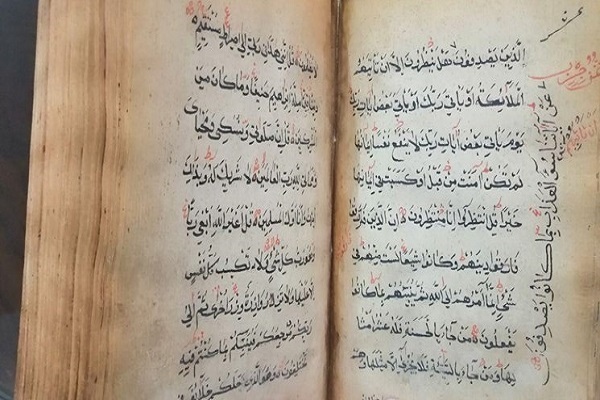 الذين يصدفون هل ينظرون الا ان تاتيهم
الملائكة او ياتي ربك او ياتي بعض ايات ربك
يوم ياتي بعض ايات ربك لا ينفع نفسا ايمانها
لم تكن امنت من قبل او كسبت في ايمانها
خيرا قل انتظروا انا منتظرون ان الذين
فارقوا دينهم وكانوا شيعا لست منهم في
شئ انما امرهم الى الله ثم ينبئهم بما كانوا
يفعلون من جاء بالحسنة فله عشر امثا
لها ومن جاء بالسيئة فلا يجزى الا مثلها وهم
عن آياتنا سوء العذاب بما كانوا يصدفون
لا يظلمون قل انني هداني ربي الى صراط مستقيم
دينا قيما ملة ابراهيم حنيفا وما كان من
المشركين قل ان صلوتي ونسكي ومحياي
ومماتي لله رب العالمين لا شريك له وبذلك
امرت وانا اول المسلمين قل اغير الله ابغي ربا
وهو رب كل شئ ولا تكسب كل نفس
الا عليها ولا تزر وازرة وزر اخرى ثم الى
ربكم مرجعكم فينبئكم بما كنتم فيه
تختلفون وهو الذي جعلكم خلائف